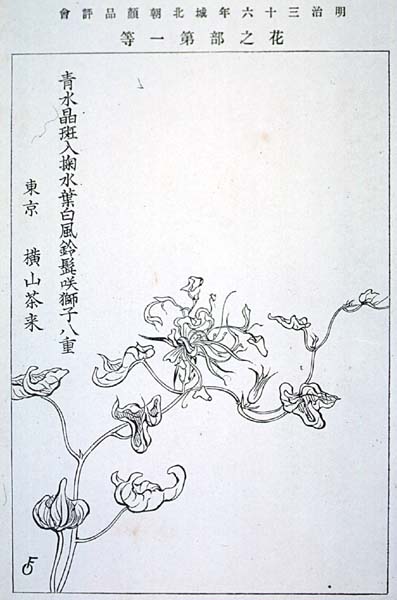 明治三十六年城北朝顏品評會
花之部第一等
青水晶斑入掬水葉白風鈴髭咲獅子八重
東京 横山茶来